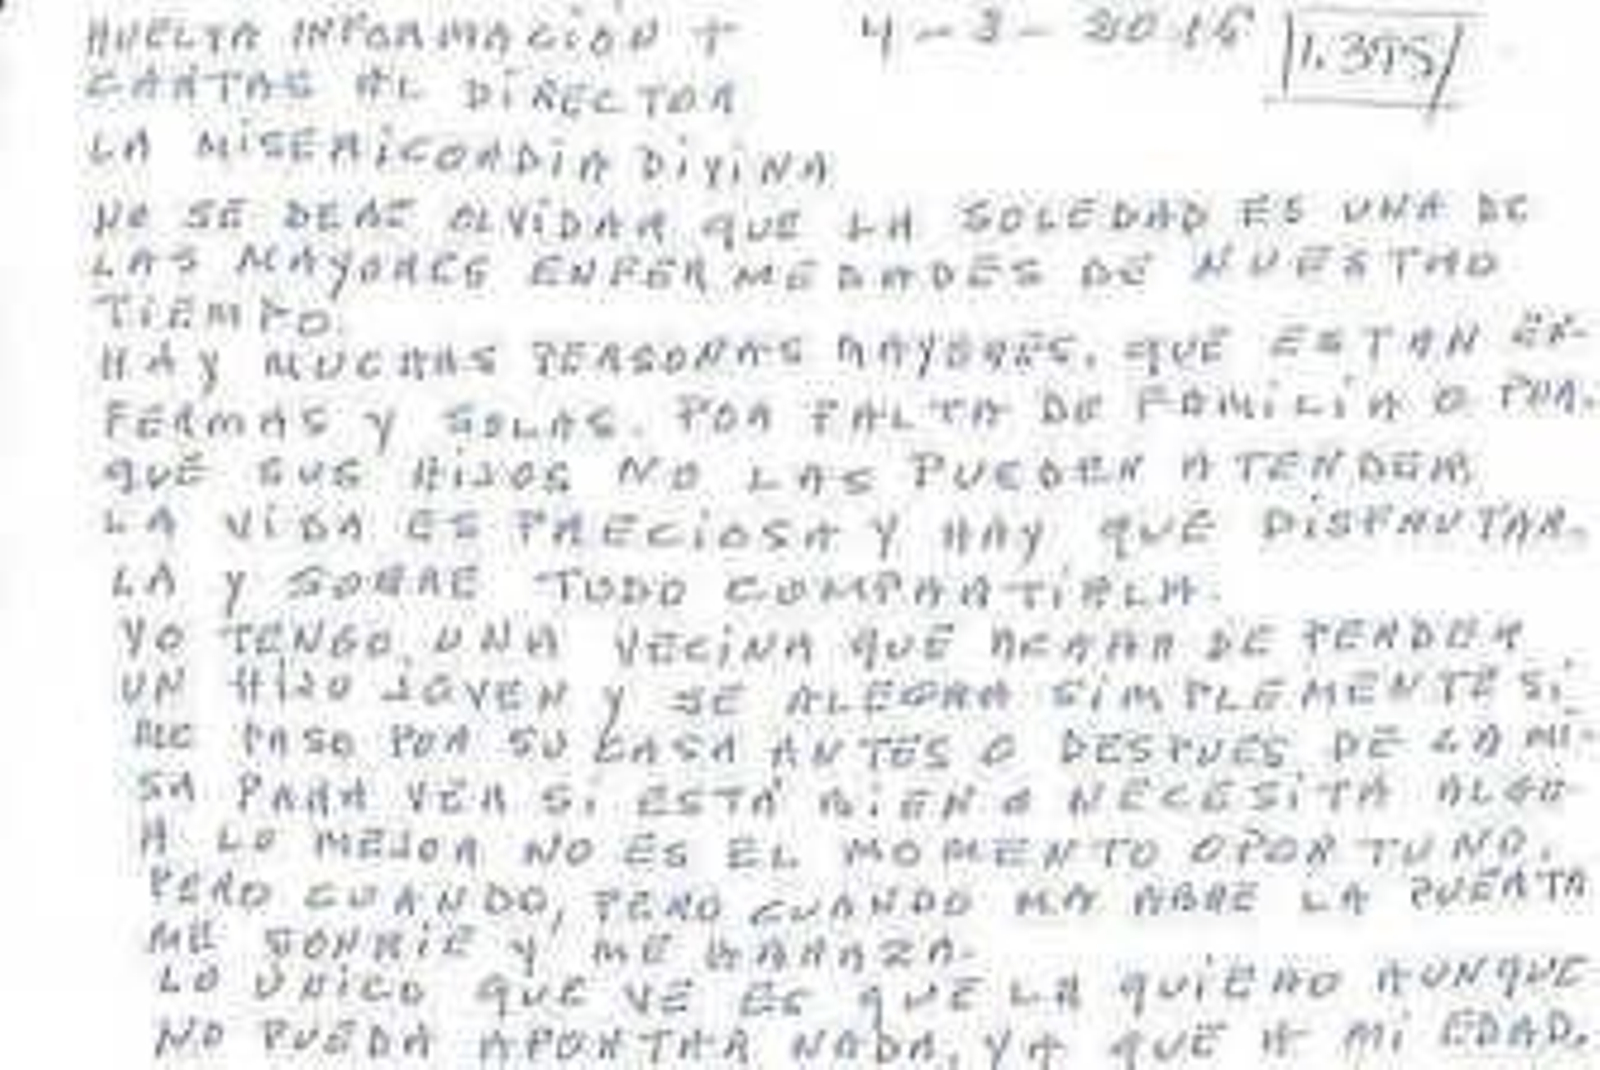 HUELVA INFORMACIÓN + 4-3-2015 1.395
CARTAS AL DIRECTOR
LA MISERICORDIA DIVINA
NO SE DEBE OLVIDAR QUE LA SOLEDAD ES UNA DE
LAS MAYORES ENFERMEDADES DE NUESTRO
TIEMPO.
HAY MUCHAS PERSONAS MAYORES, QUE ESTAN EN-
FERMAS Y SOLAS. POR FALTA DE FAMILIA O POR-
QUE SUS HIJOS NO LAS PUEDEN ATENDER
LA VIDA ES PRECIOSA Y HAY QUE DISFRUTAR-
LA Y SOBRE TODO COMPARTIRLA.
YO TENGO UNA VECINA QUE ACABA DE PERDER
UN HIJO JOVEN Y SE ALEGRA SIMPLEMENTE SI
ME PASO POR SU CASA ANTES O DESPUES DE LA MI-
SA PARA VER SI ESTÁ BIEN O NECESITA ALGO
A LO MEJOR NO ES EL MOMENTO OPORTUNO.
PERO CUANDO, PERO CUANDO MA ABRE LA PUERTA
ME SONRIE Y ME ABRAZA.
LO UNICO QUE VE ES QUE LA QUIERO AUNQUE
NO PUEDA APORTAR NADA, YA QUE A MI EDAD.